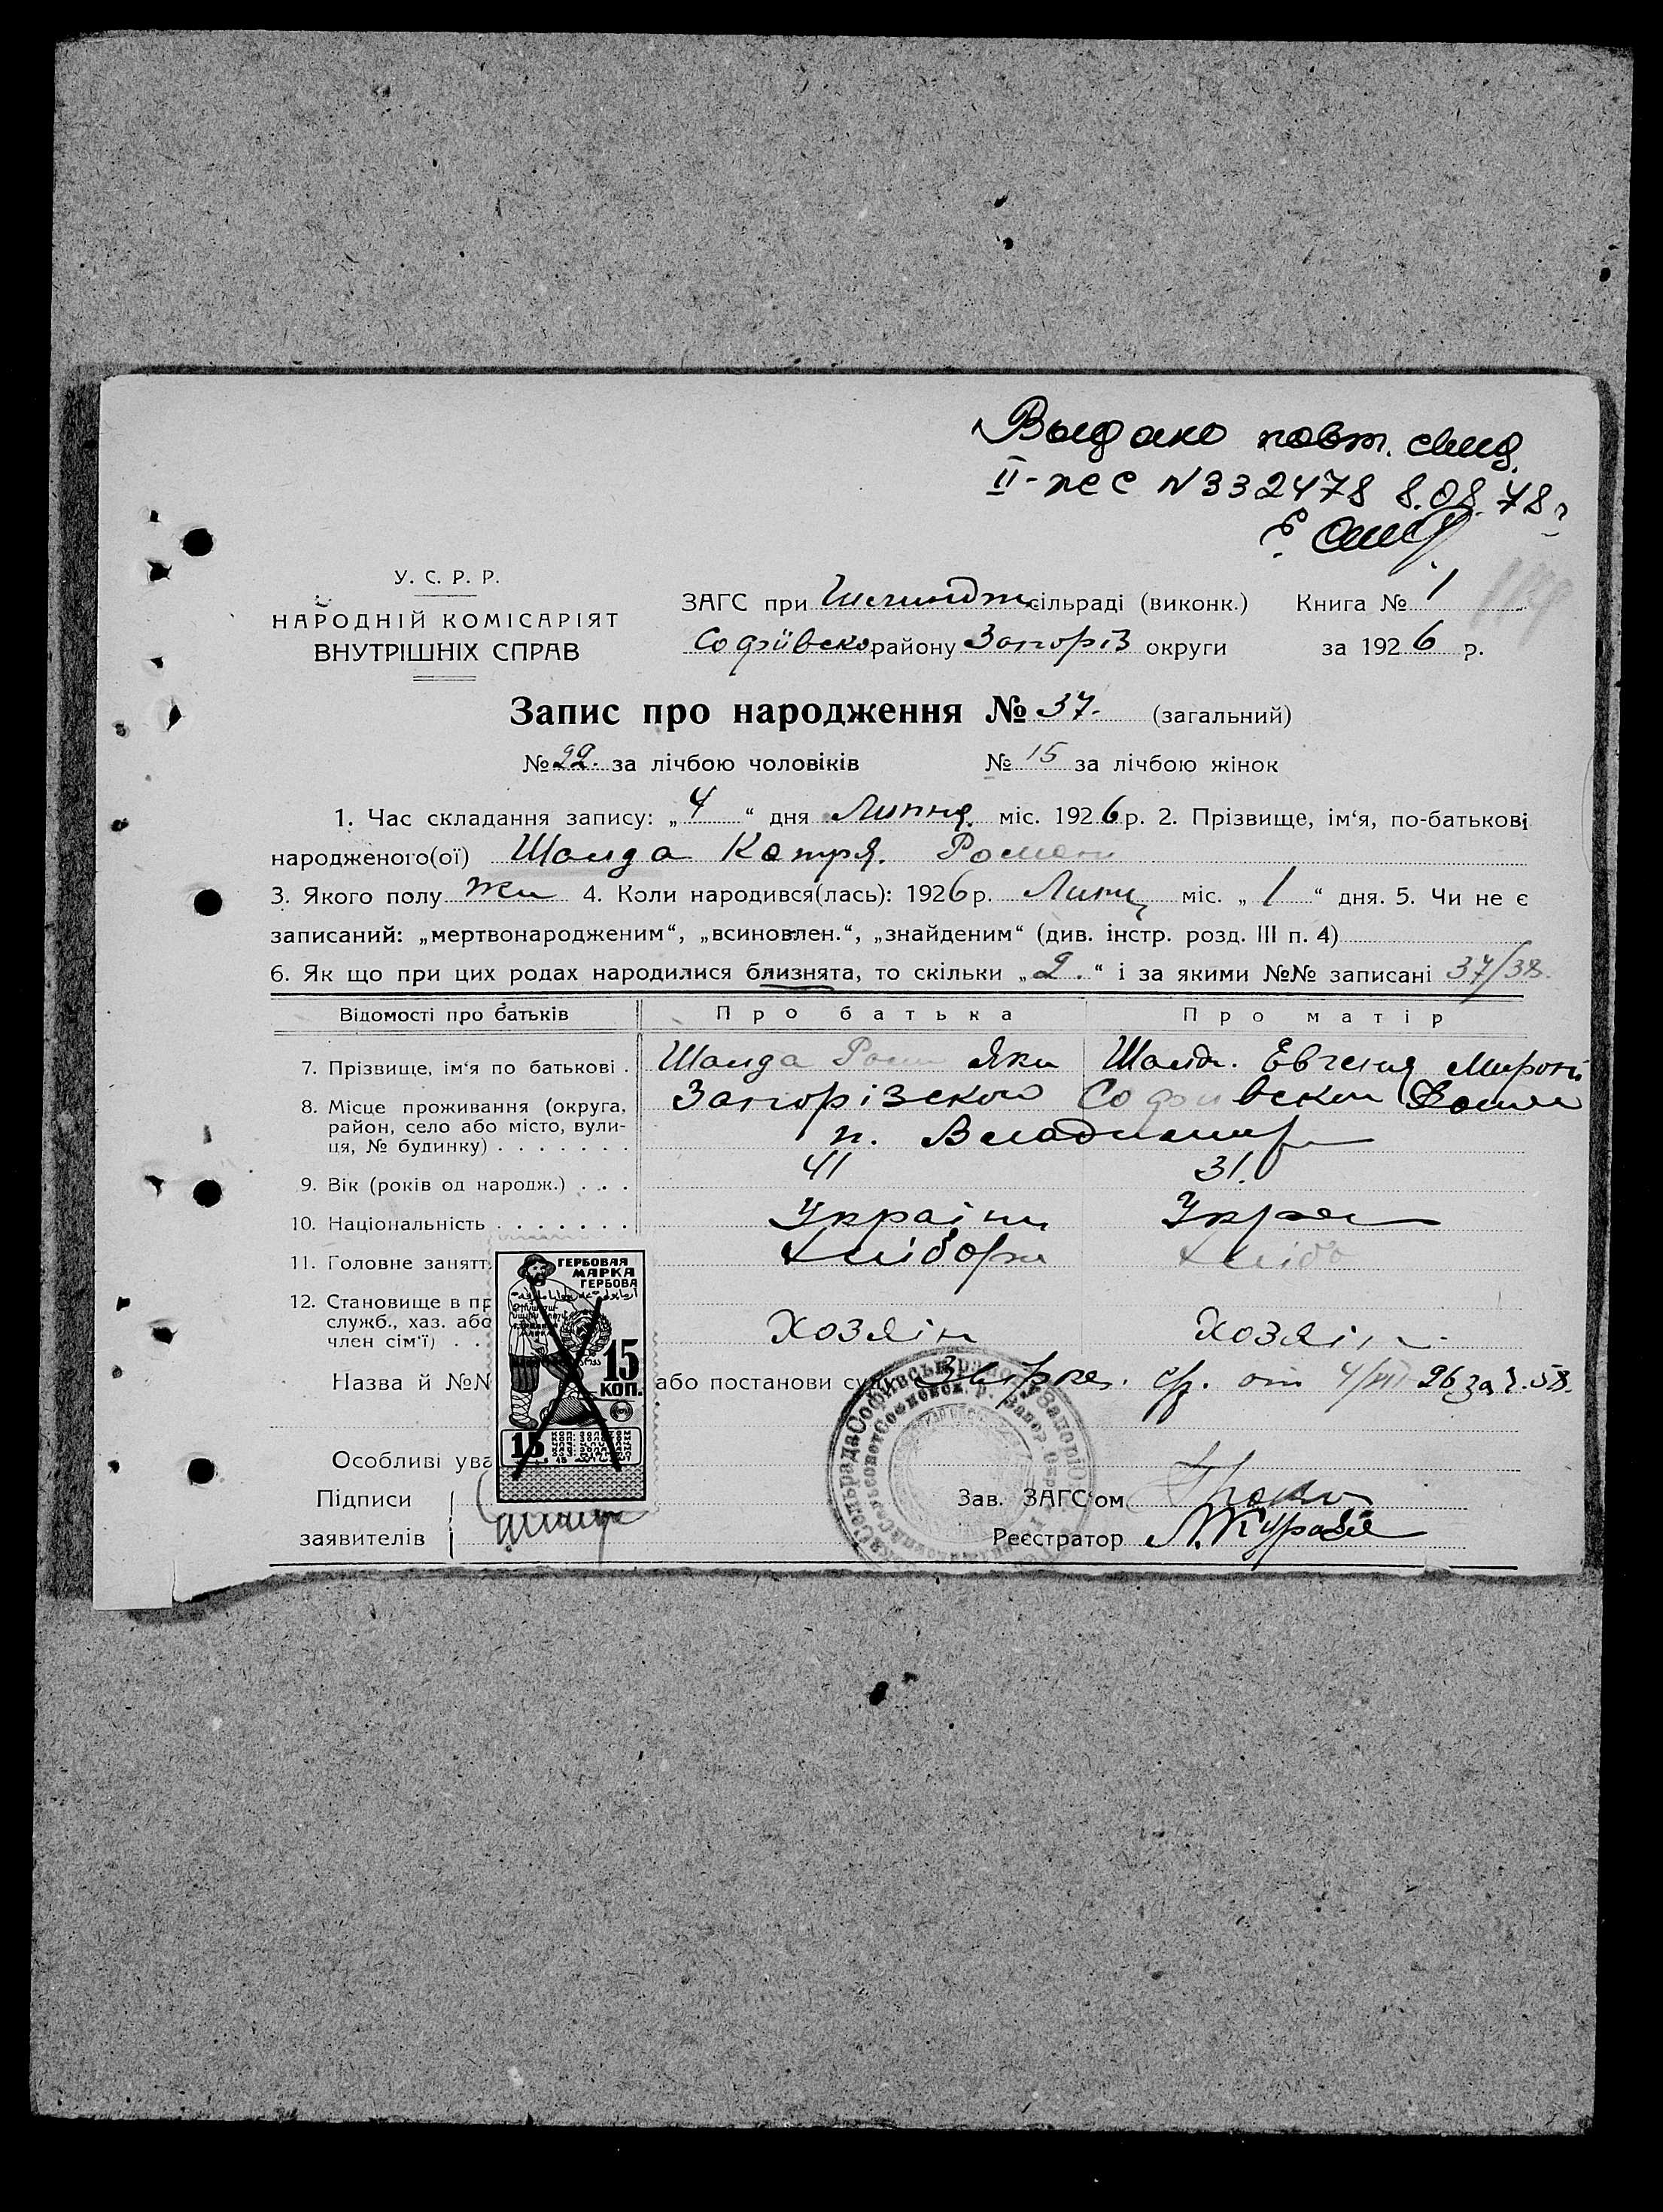 Выдано повт. свид.
II-ЖС N332478 8.08.78г
У. С. Р. Р.
НАРОДНІЙ КОМІСАРІЯТ
ВНУТРІШНІХ СПРАВ
ЗАГС при сільраді (виконк.) Книга № 1
Софіївсько району Запоріз округи за 1926 р.
Запис про народження № 37. (загальний)
№ 22. за лічбою чоловіків № 15 за лічбою жінок
1. Час складання запису: „ 4 “ дня Липня. міс. 1926 р. 2. Прізвище, ім‘я, по-батькові
народженого(ої) Шаида Катря. Роман
3. Якого полу Жи 4. Коли народився(лась): 1926 р. Липц міс. „ 1 “ дня. 5. Чи не є
записаний: „мертвонародженим“, „всиновлен.“, „знайденим“ (див. інстр. розд. III п. 4)
6. Як що при цих родах народилися близнята, то скільки „ 2. “ і за якими №№ записані 37/38.
Відомості про батьків Про батька Про матір
7. Прізвище, ім‘я по батькові . Шаида Яки Шаид. Евгения Мирон
8. Місце проживання (округа, Запорізскои Софиевскои
район, село або місто, вули- п. Владимир
ця, № будинку) . . . . . . .
9. Вік (років од народж.) . . . 41 31.
10. Національність . . . . . . . Україн Украи
11. Головне занятт Хлібороб Хлібо
12. Становище в пр
служб., хаз. або Хозяін Хозяін
член сім‘ї) . .
Назва й №№ або постанови суд от 4/VII 26 за
Особливі ува
Підписи
заявителів
Зав. ЗАГС‘ом
Реєстратор
ГЕРБОВАЯ
МАРКА
ГЕРБОВА
15
КОП.
15